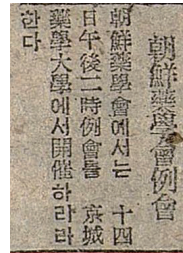 朝鮮藥學會例會
朝鮮藥學會에서는 十四
日午後二時例會를 京城
藥學大學에서開催하리라
한다